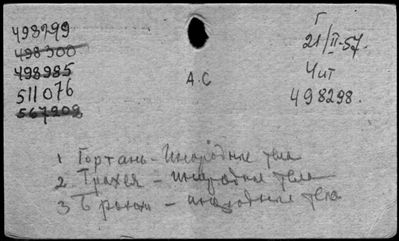 498299
498300
498985
511076
567209
А.С
Г
21/II-57.
Чит
498298.
1 Гортань - Инородные тела
2 Трахея - инородные тела
3 Бронхи - инородные тела